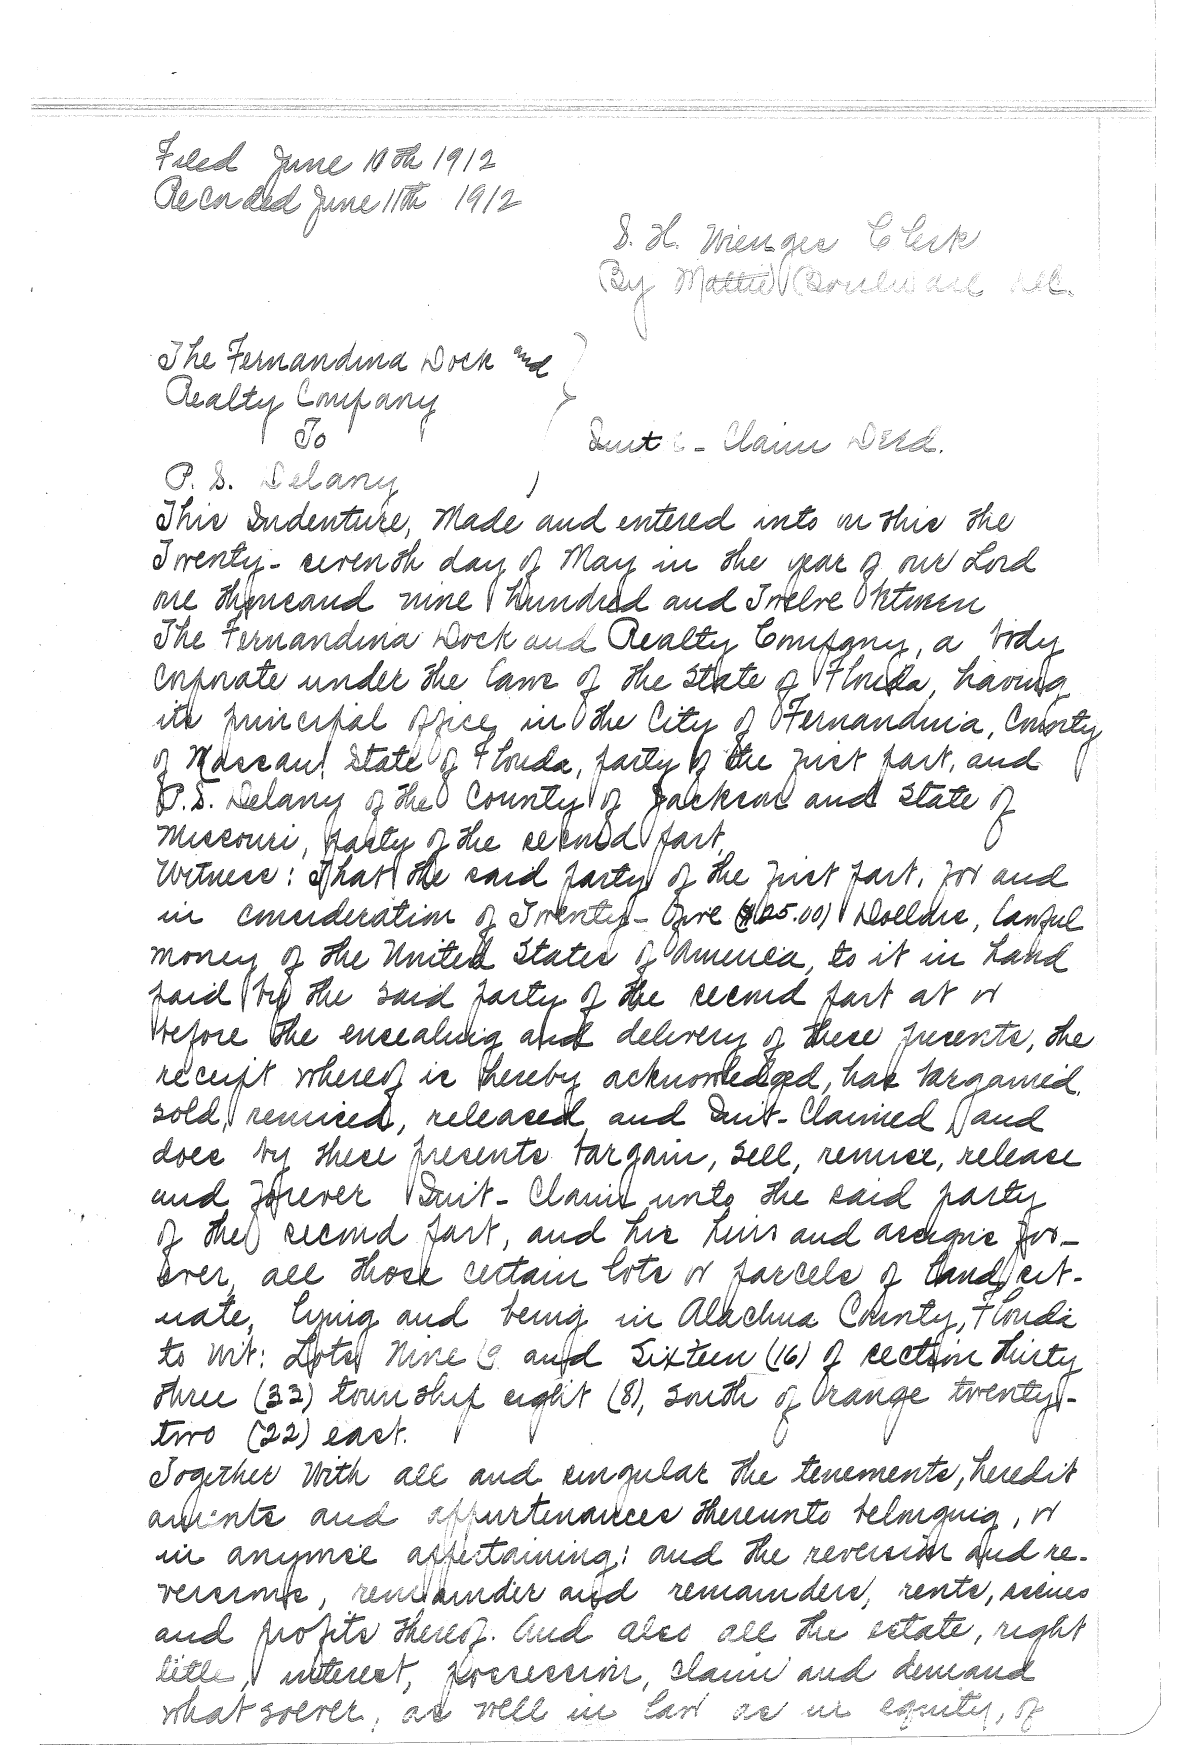 Filed June 10th 1912
Recorded June 11th 1912
S. H. Wienges Clerk
By Mattie Boulware D.C.
The Fernandina Dock and
Realty Company
To
Quit - Claim Deed.
P. S. Delany
This Indenture, Made and entered into on this the
Twenty-seventh day of May in the year of our Lord
one thousand nine hundred and Twelve between
The Fernandina Dock and Realty Company, a body
corporate under the laws of the State of Florida, having
its principal office in the City of Fernandina, County
of Nassau, State of Florida, party of the first part, and
P.S. Delany of the County of Jackson and State of
Missouri, party of the second part,
Witness: That the said party of the first part, for and
in consideration of Twenty-five ($25.00) Dollars, lawful
money of the United States of America, to it in hand
paid by the said party of the second part at or
before the ensealing and delivery of these presents, the
receipt whereof is hereby acknowledged, has bargained,
sold, remised, released, and Quit-Claimed, and
does by these presents bargain, sell, remise, release
and forever Quit-Claim unto the said party
of the second part, and his heirs and assigns for-
ever, all those certain lots or parcels of land, sit-
uate, lying and being in Alachua County, Florida
to wit: Lots Nine (9 and Sixteen (16) of section thirty
three (33) township eight (8), south of range twenty-
two (22) east.
Together With all and singular the tenements, heredit
aments and appurtenances thereunto belonging, or
in anywise appertaining: and the reversion and re-
versions, remainder and remainders, rents, issues
and profits thereof. And also all the estate, right
title, interest, possession, claim and demand
whatsoever, as well in law as in equity, of